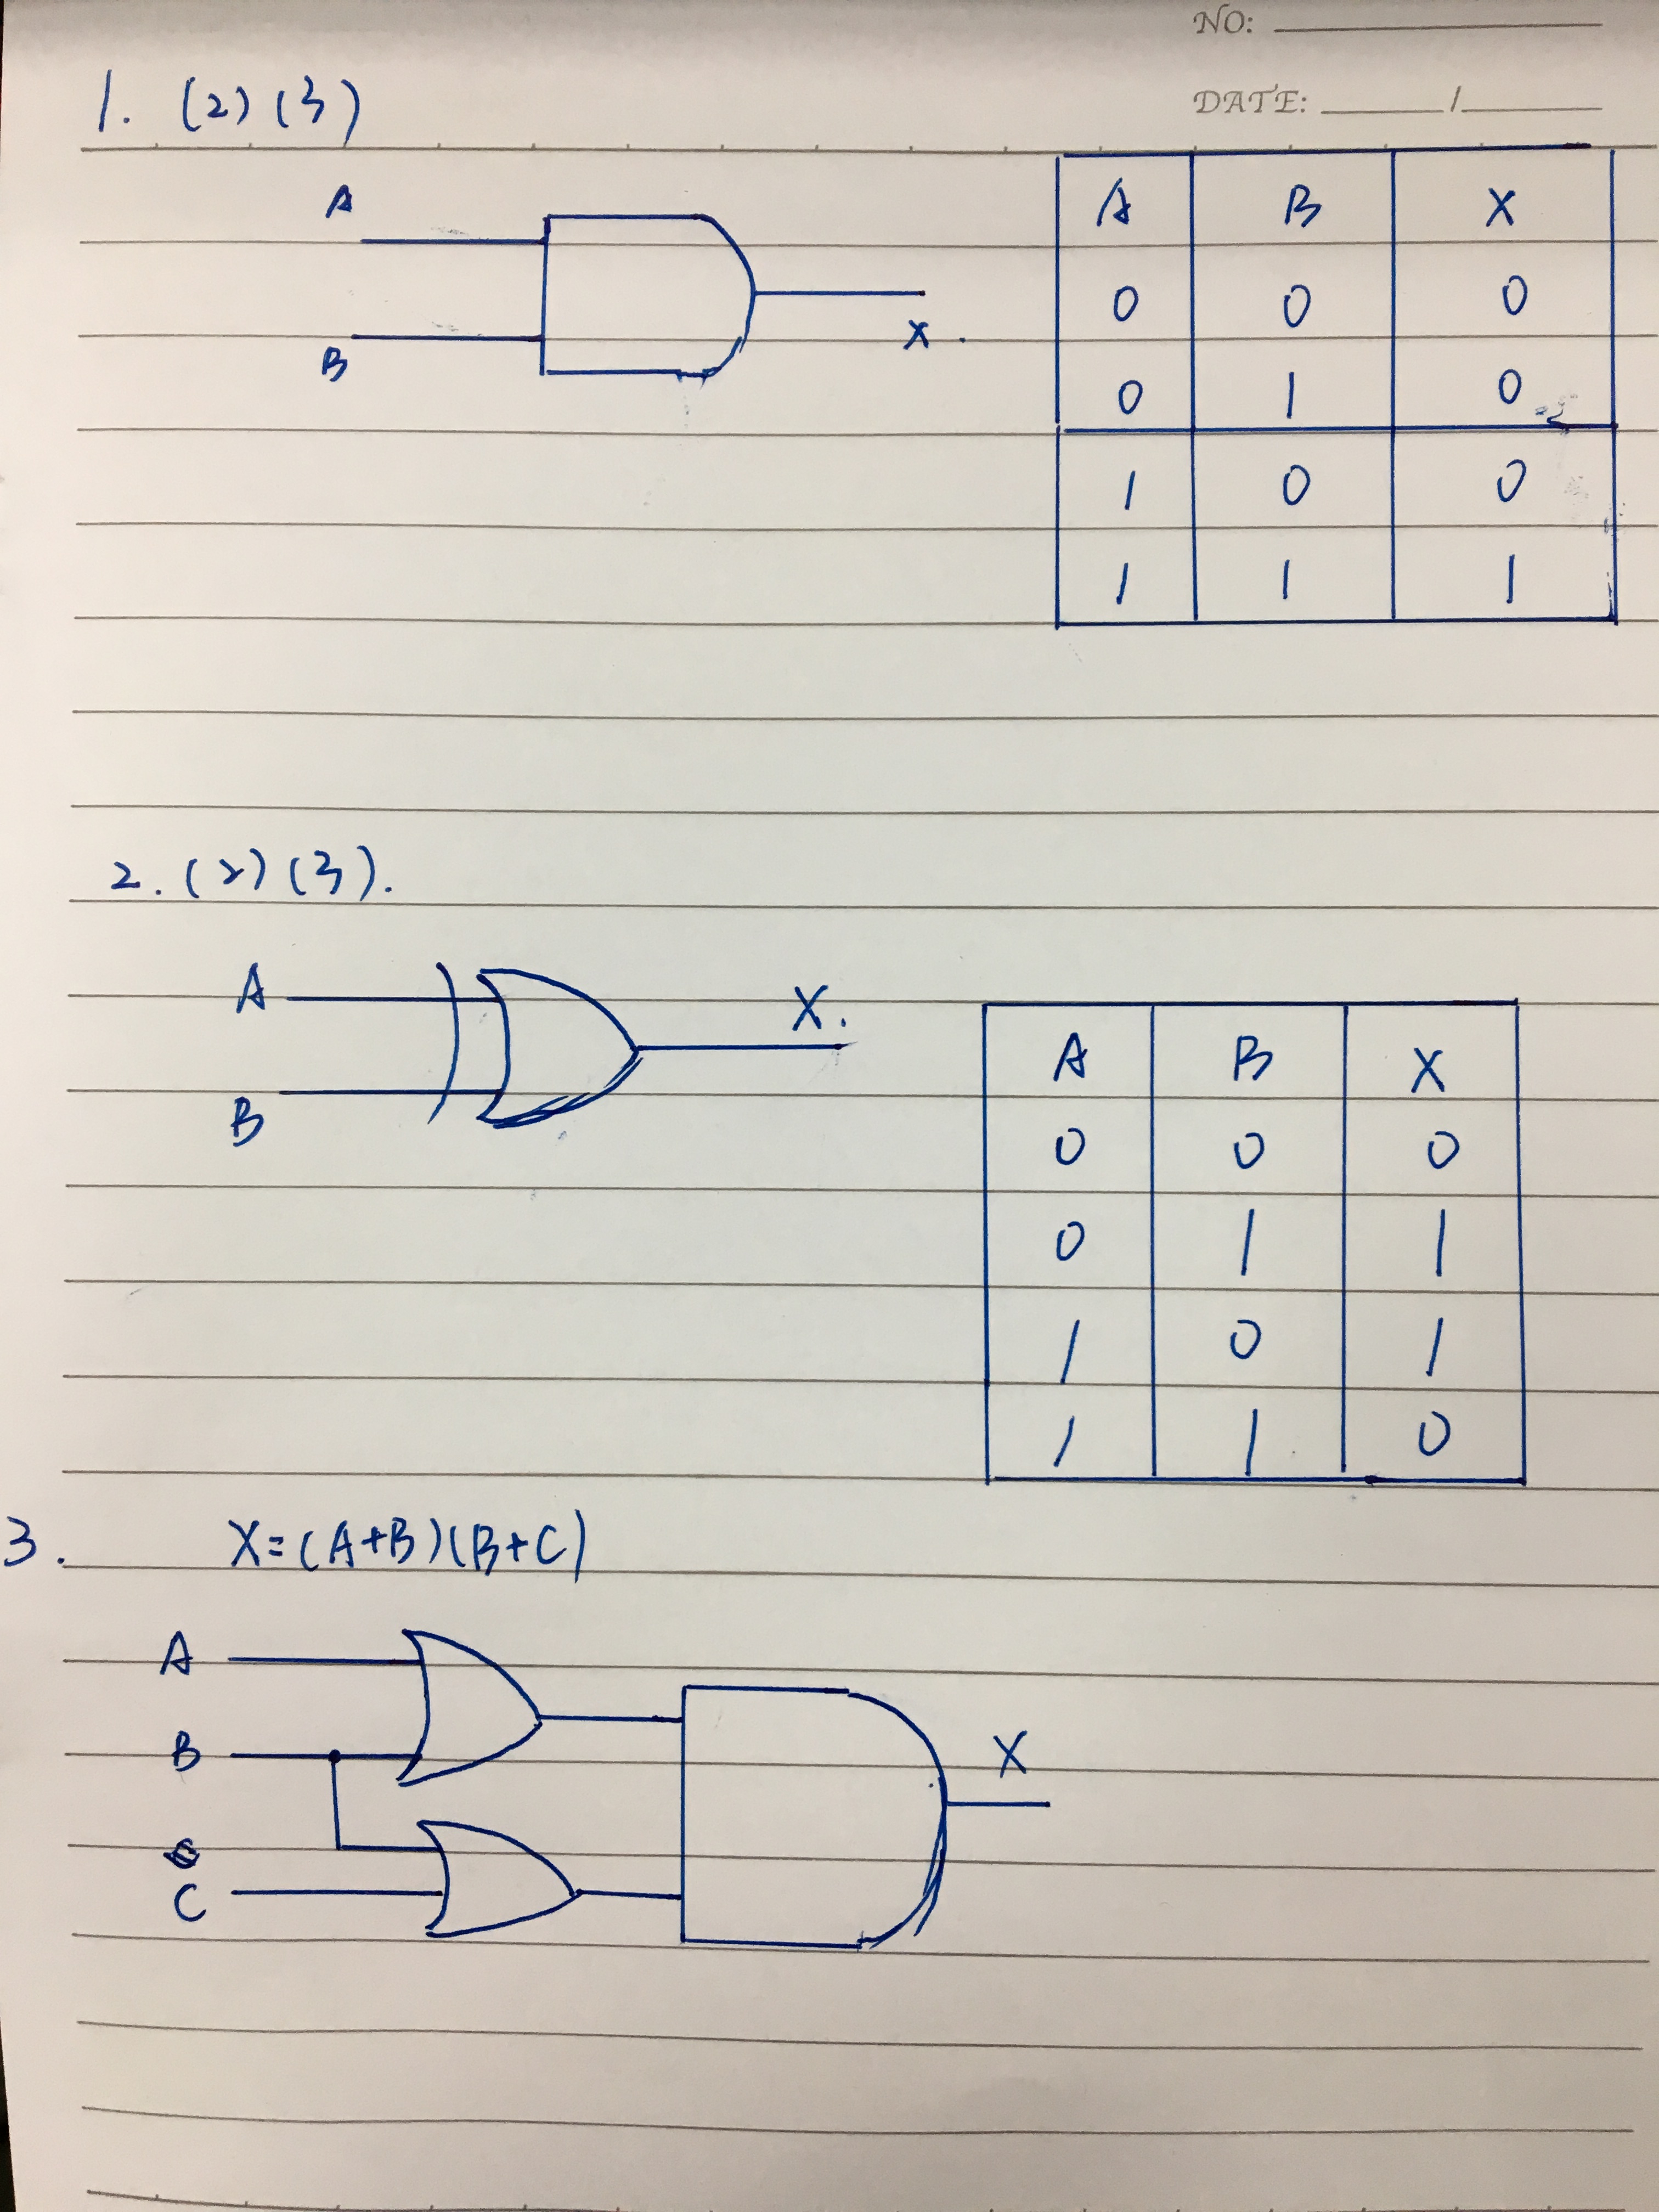 NO:
DATE: /
1. (2) (3)
A
B
X.
A B X
0 0 0
0 1 0
1 0 0
1 1 1
2. (2) (3).
A
B
X.
A B X
0 0 0
0 1 1
1 0 1
1 1 0
3. X=(A+B)(B+C)
A
B
C
X